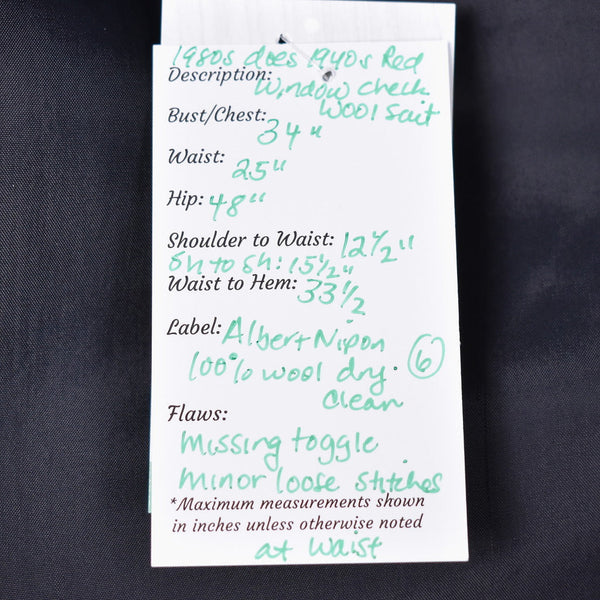 1980s does 1940s Red
Description: Window Check
Wool Suit
Bust/Chest: 34"
Waist: 25"
Hip: 48"
Shoulder to Waist: 12 1/2"
Sh to Sh: 15 1/2"
Waist to Hem: 33 1/2
Label: Albert Nipon
100% wool dry 6
clean
Flaws:
Missing toggle
Minor loose stitches
*Maximum measurements shown
in inches unless otherwise noted
at waist